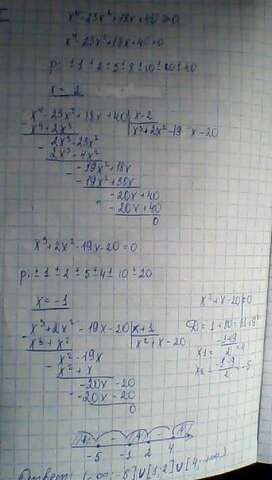 x⁴-23x²+18x+40≥0
x⁴-23x²+18x+40=0
p: ±1 ±2 ±5 ±8 ±10 ±20 ±40
x = 2
x⁴-23x²+18x+40 | x-2
x³+2x²-19x-20
2x³-23x²
2x³-4x²
-19x²+18x
-19x²+38x
-20x+40
-20x+40
0
x³+2x²-19x-20=0
p: ±1 ±2 ±5 ±4 ±10 ±20
x=-1
x³+2x²-19x-20 | x+1
x³+x²
x²+x-20
x²-19x
x²+x
-20x-20
-20x-20
0
x²+x-20=0
-5 -1 2 4
Ответ: